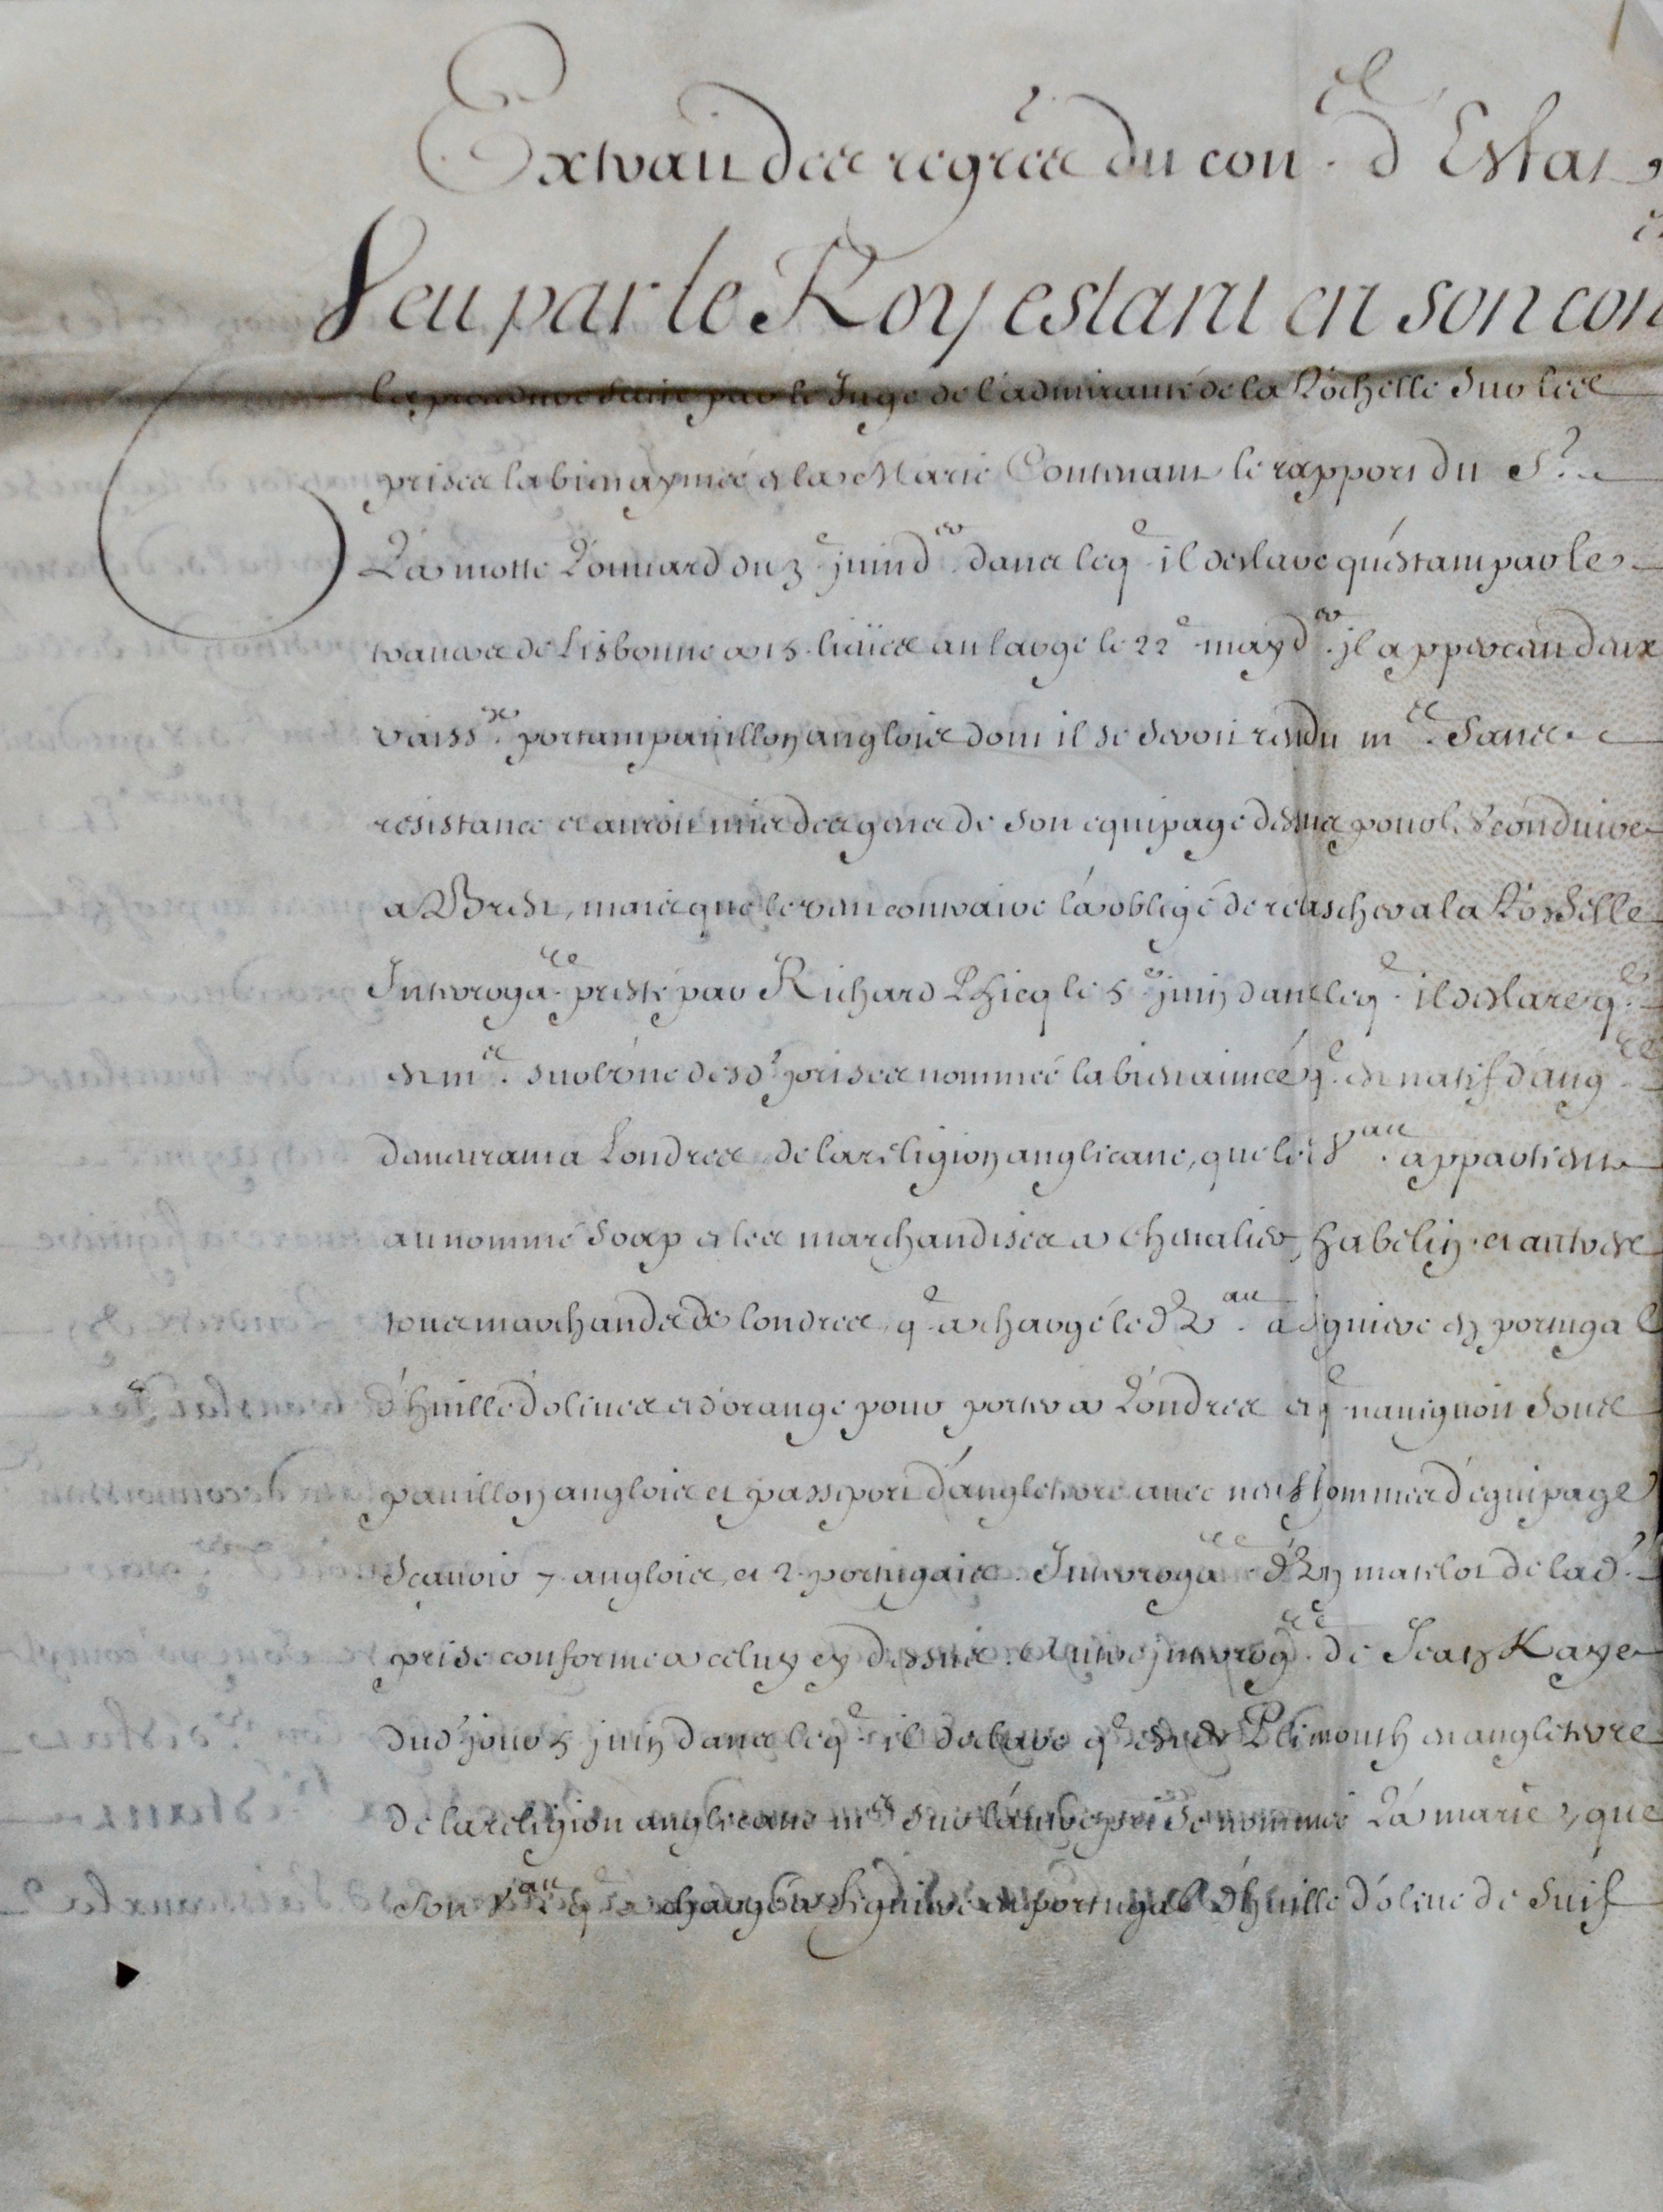 Extrait des regres du conel d'Estat
Veu par le Roy estant en son con
la procedure faite par le Juge de l'admirauté de la Rochelle sur les
prises la bien aymée et la Marie Contenant le rapport du Sr
La motte du 3e juin dr dans leqe il declare qu'estant par le
travers de Lisbonne a 15 lieües au large le 22e may dr il apperceut deux
vaissx portant pavillon anglois dont il se seroit rendu me sans
resistance et auroit mis des gens de son equipage dessus pour les conduire
a Brest, mais que le vent contraire l'a obligé de relascher a la Rochelle
Interrogare presté par Richard le 5e juin dans leqe il declare qe
est me sur l'une desd prises nommée la bien aimée qe est natif d'angre
demeurant a Londres de la religion anglicane, que le Vau appartient
au nommé Soap et les marchandises a et autres
tous marchands de Londres, qe a chargé led Vau a figuiere en portugal
d'huille d'olives et d'orange pour porter a Londres et qe naviguoit sous
pavillon anglois et passeport d'angleterre avec neuf hommes d'equipage
scavoir 7 anglois, et 2 portugais. Interrogare d'Un matelot de lad
prise conforme a celuy cy dessus. Autre interrogre de Jean Kaye
dud jour 5 juin dans leqe il declare qe est de Plimouth en angleterre
de la religion anglicane me sur l'autre prise nommée La marie, que
son Vau qe a chargé a figuiere en portugal d'huille d'olive de suif